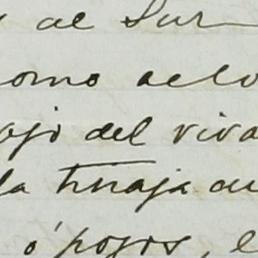 al Sur
omo aelo
ojo del viva
la tinaja au
o' pozos, e